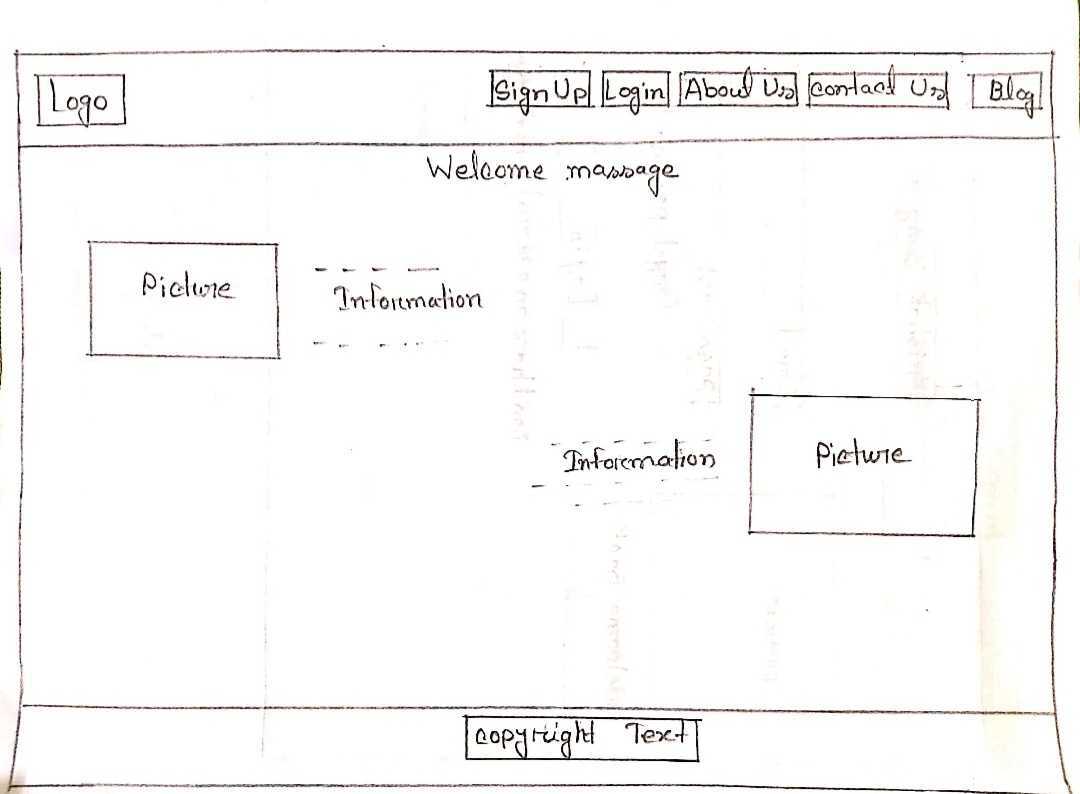 Logo
Sign Up Login About Us Contact Us Blog
Welcome massage
Picture
Information
Information
Picture
copyright Text